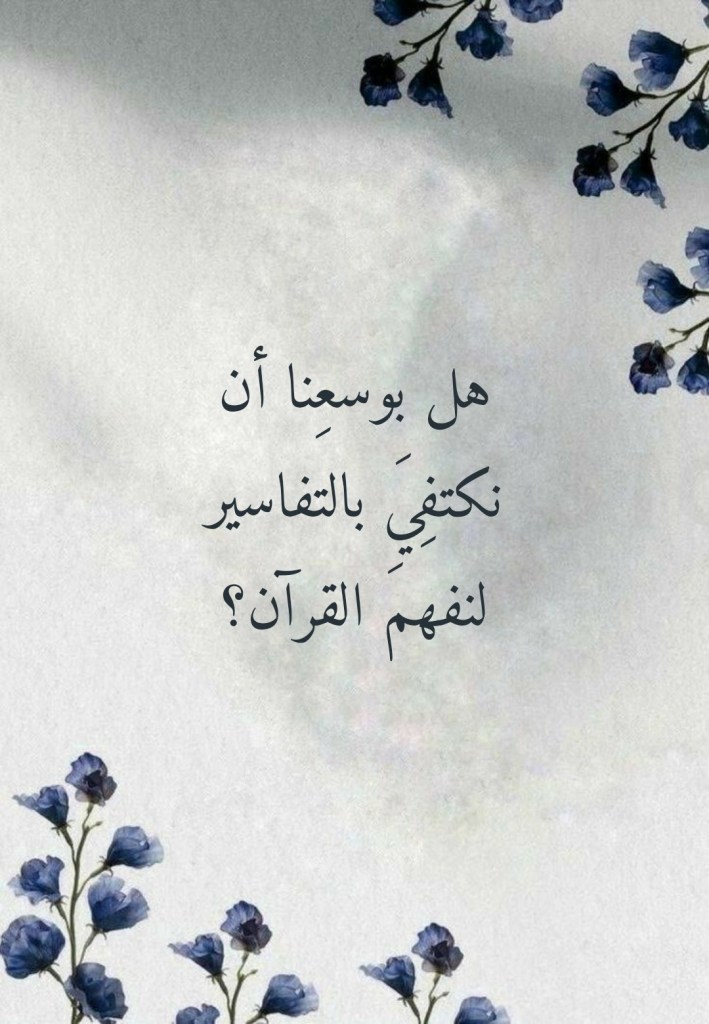 هل بوسعِنا أن
نكتفِيَِ بالتفاسير
لنفهمَ القرآن؟